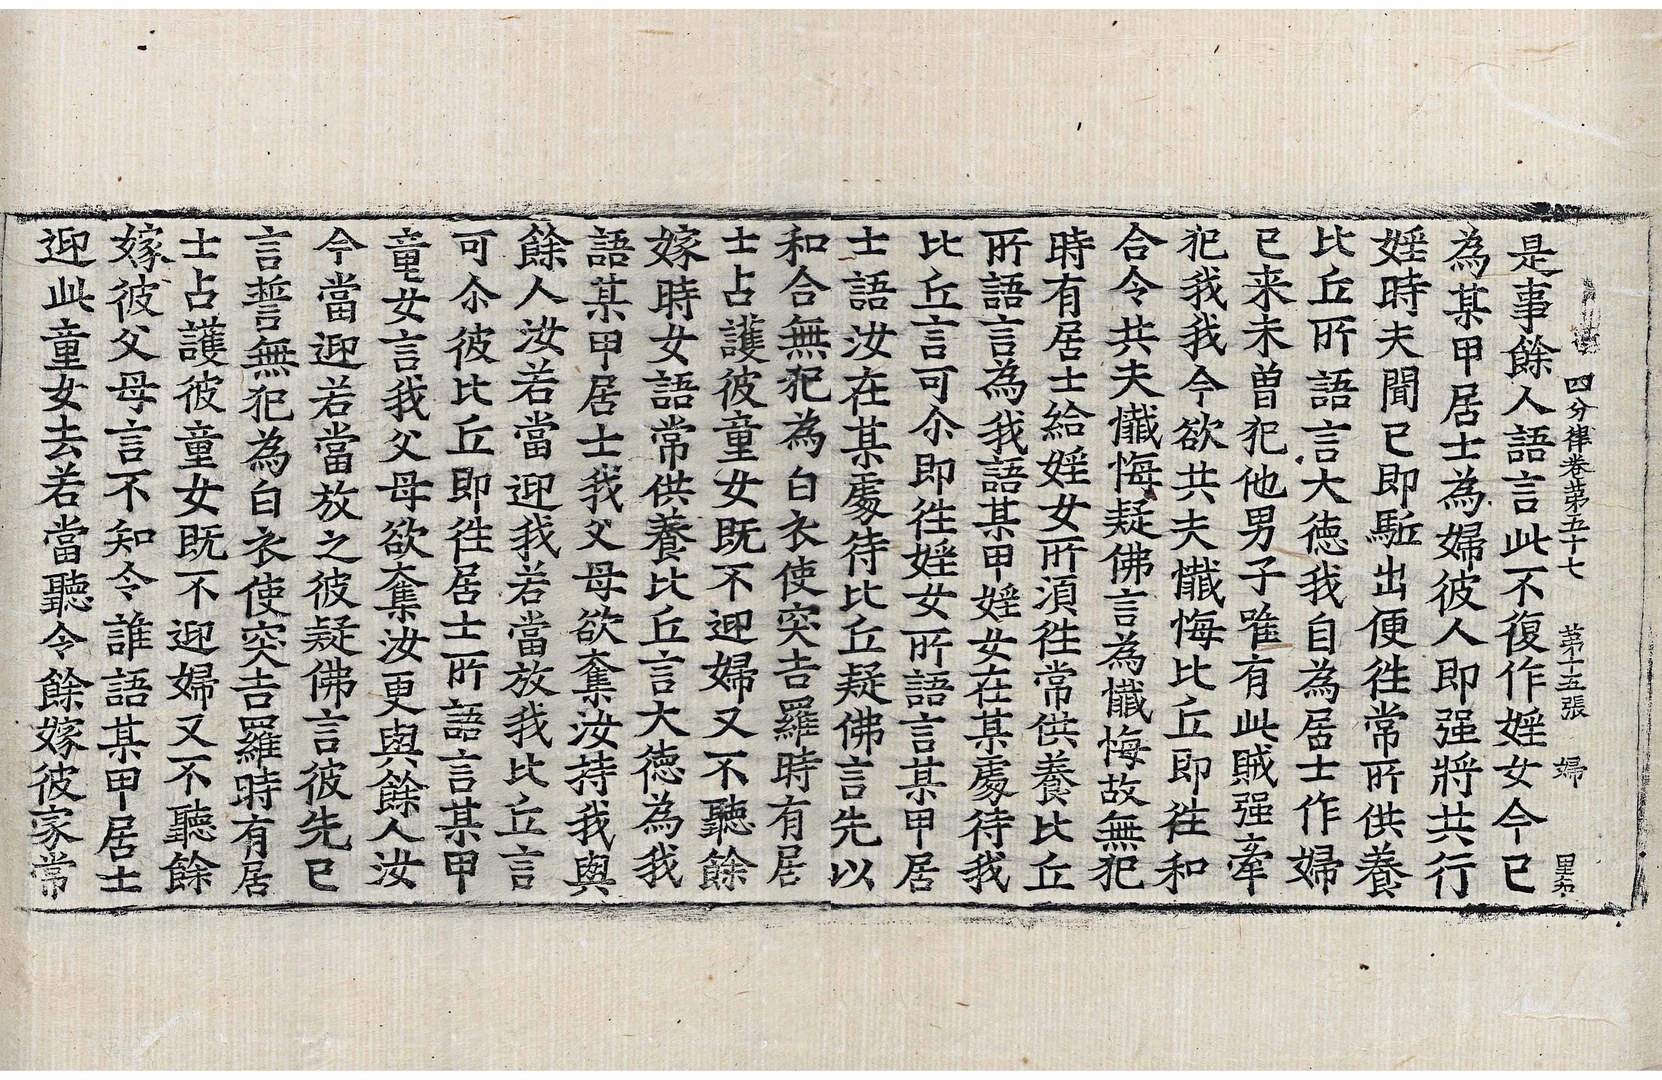 四分律卷第五十七 第十五張 婦
是事餘人語言此不復作婬女今已
為某甲居士為婦彼人即强將共行
婬時夫聞已即駈出便徃常所供養
比丘所語言大德我自為居士作婦
已来未曾犯他男子唯有此賊强牽
犯我我今欲共夫懺悔比丘即徃和
合令共夫懺悔疑佛言為懺悔故無犯
時有居士給婬女所湏徃常供養比丘
所語言為我語某甲婬女在某處待我
比丘言可尒即徃婬女所語言某甲居
士語汝在某處待比丘疑佛言先以
和合無犯為白衣使突吉羅時有居
士占護彼童女既不迎婦又不聽餘
嫁時女語常供養比丘言大德為我
語某甲居士我父母欲奪汝持我與
餘人汝若當迎我若當放我比丘言
可尒彼比丘即徃居士所語言某甲
童女言我父母欲奪汝更與餘人汝
今當迎若當放之彼疑佛言彼先已
言誓無犯為白衣使突吉羅時有居
士占護彼童女既不迎婦又不聽餘
嫁彼父母言不知令誰語某甲居士
迎此童女去若當聽令餘嫁彼家常